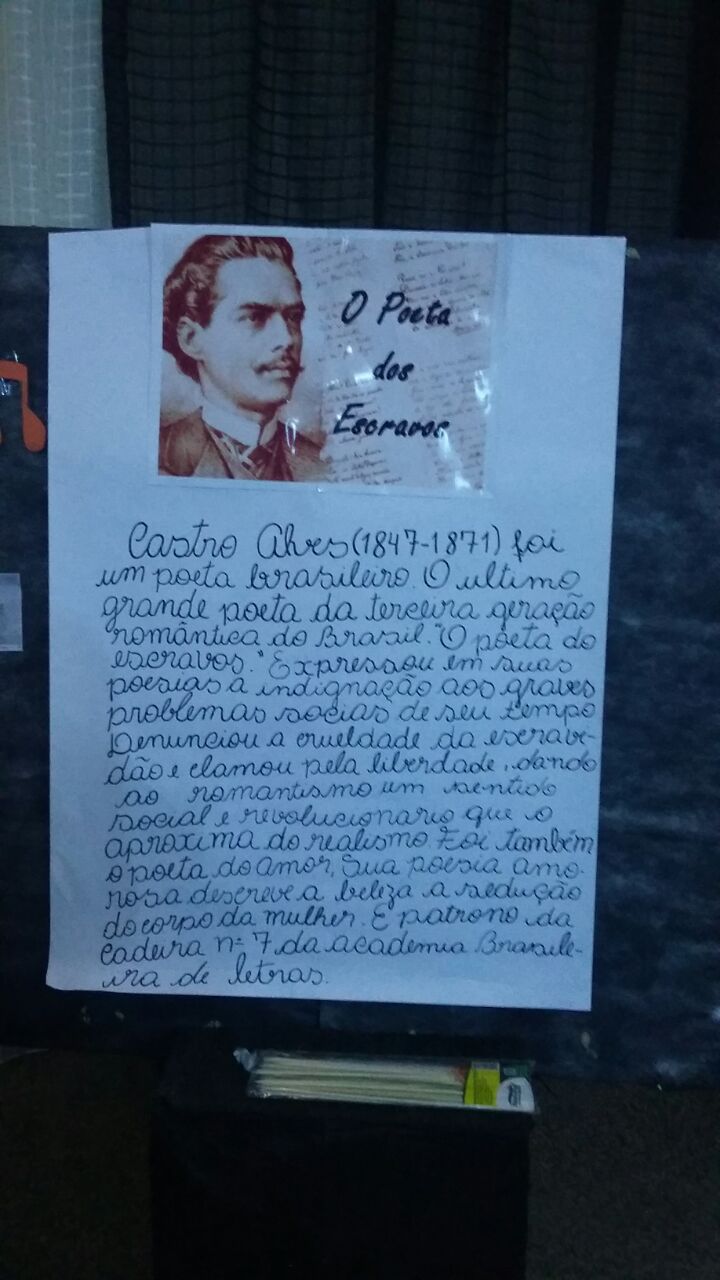 O Poeta
dos
Escravos
Castro Alves (1847-1871) foi
um poeta brasileiro. O ultimo
grande poeta da terceira geração
romântica do Brasil. "O poeta do
escravos." Expressou em suas
poesias a indignação aos graves
problemas socias de seu tempo
Denunciou a crueldade da escravi-
dão e clamou pela liberdade, dando
ao romantismo um sentido
social e revolucionario que o
aproxima do realismo. Foi também
o poeta do amor, Sua poesia amo-
rosa descreve a beleza a sedução
do corpo da mulher. E patrono da
cadeira nº 7 da academia Brasile-
ira de letras.